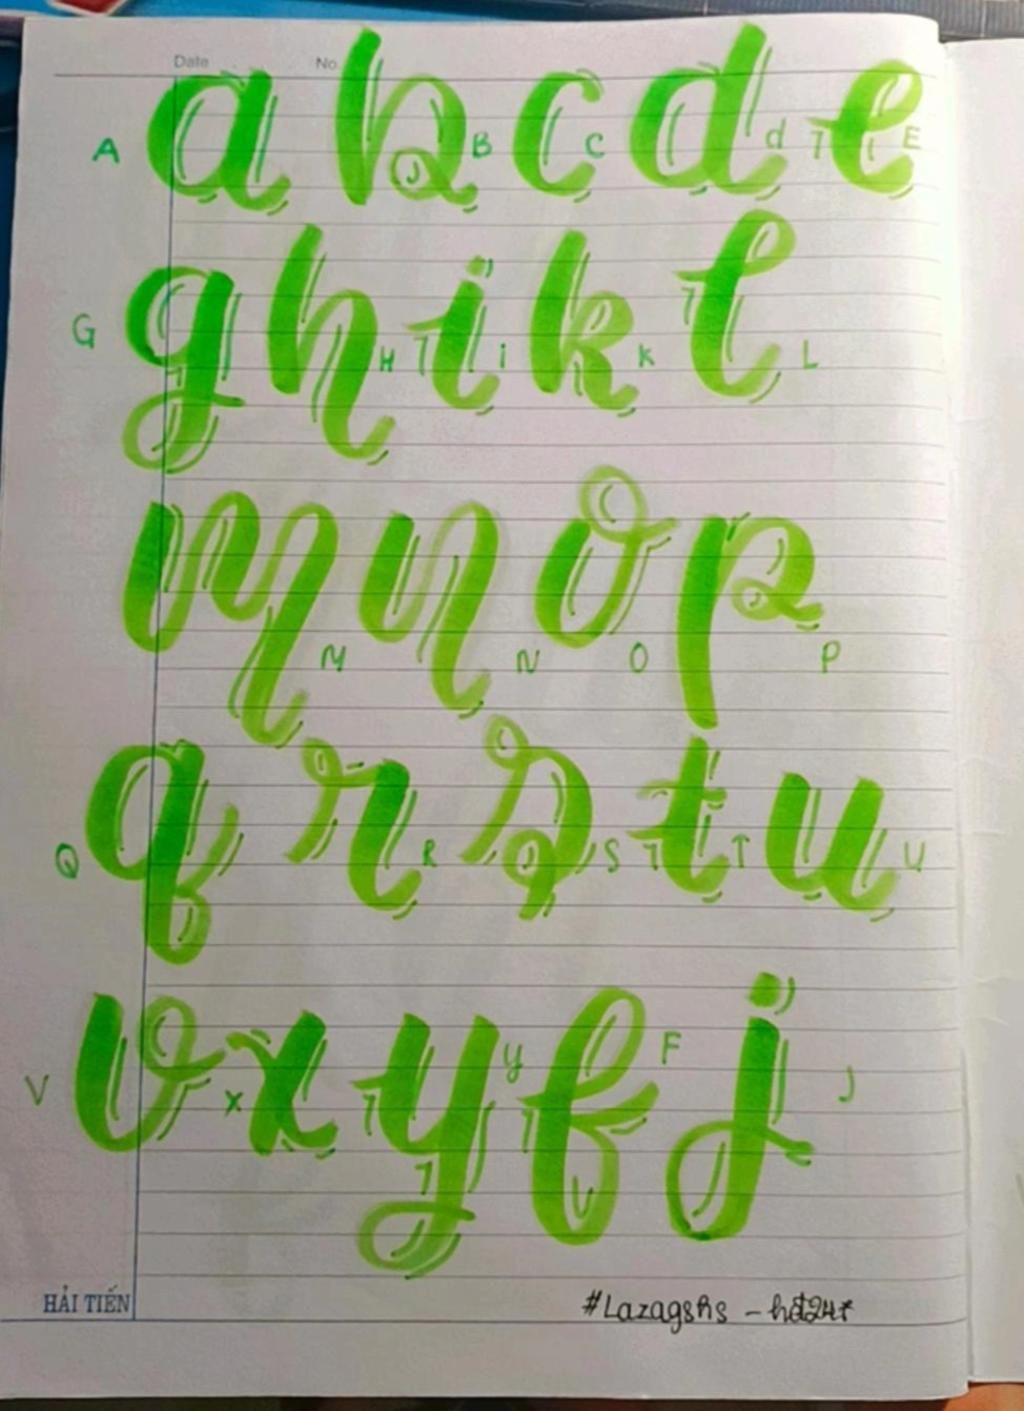 Date No
A a b B c C d d e E
G g h H i i k K l L
m M n N o O p P
Q q r R s S t T u U
V v x X y y f F j J
HẢI TIẾN #Lazagshs - hđ24*